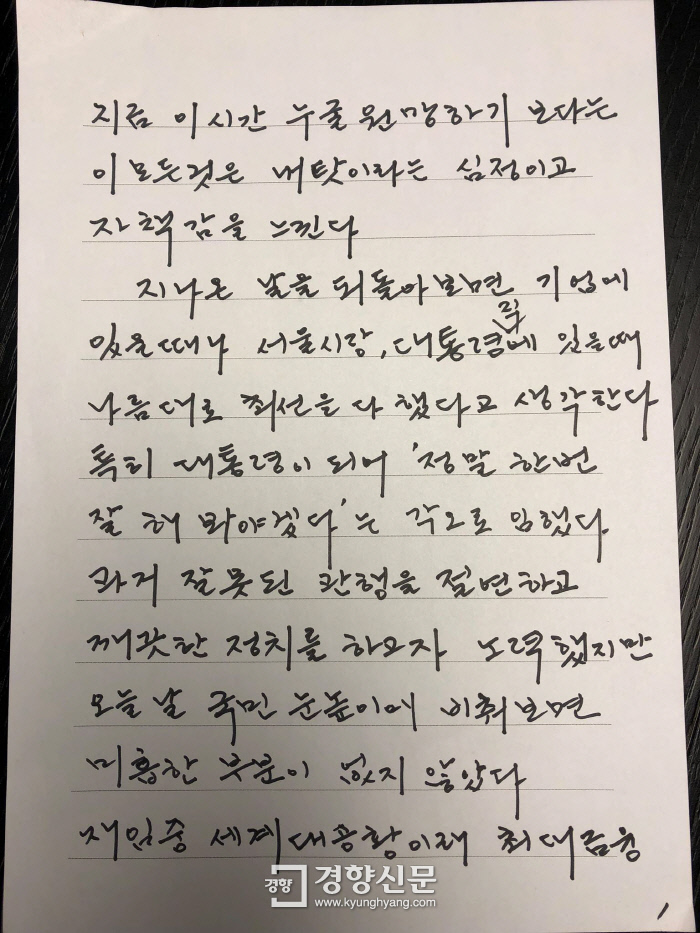 지금 이시간 누굴 원망하기 보다는
이 모든것은 내탓이라는 심정이고
자책감을 느낀다
지나온 날을 되돌아보면 기업에
있을때나 서울시장, 대통령직에 있을때
나름대로 최선을 다 했다고 생각한다
특히 대통령이 되어 '정말 한번
잘 해 봐야겠다'는 각오로 임했다
과거 잘못된 관행을 절연하고
깨끗한 정치를 하고자 노력했지만
오늘날 국민 눈높이에 비춰보면
미흡한 부분이 없지 않았다
재임중 세계대공황이래 최대금융
경향 경향신문
www.kyunghyang.com
1